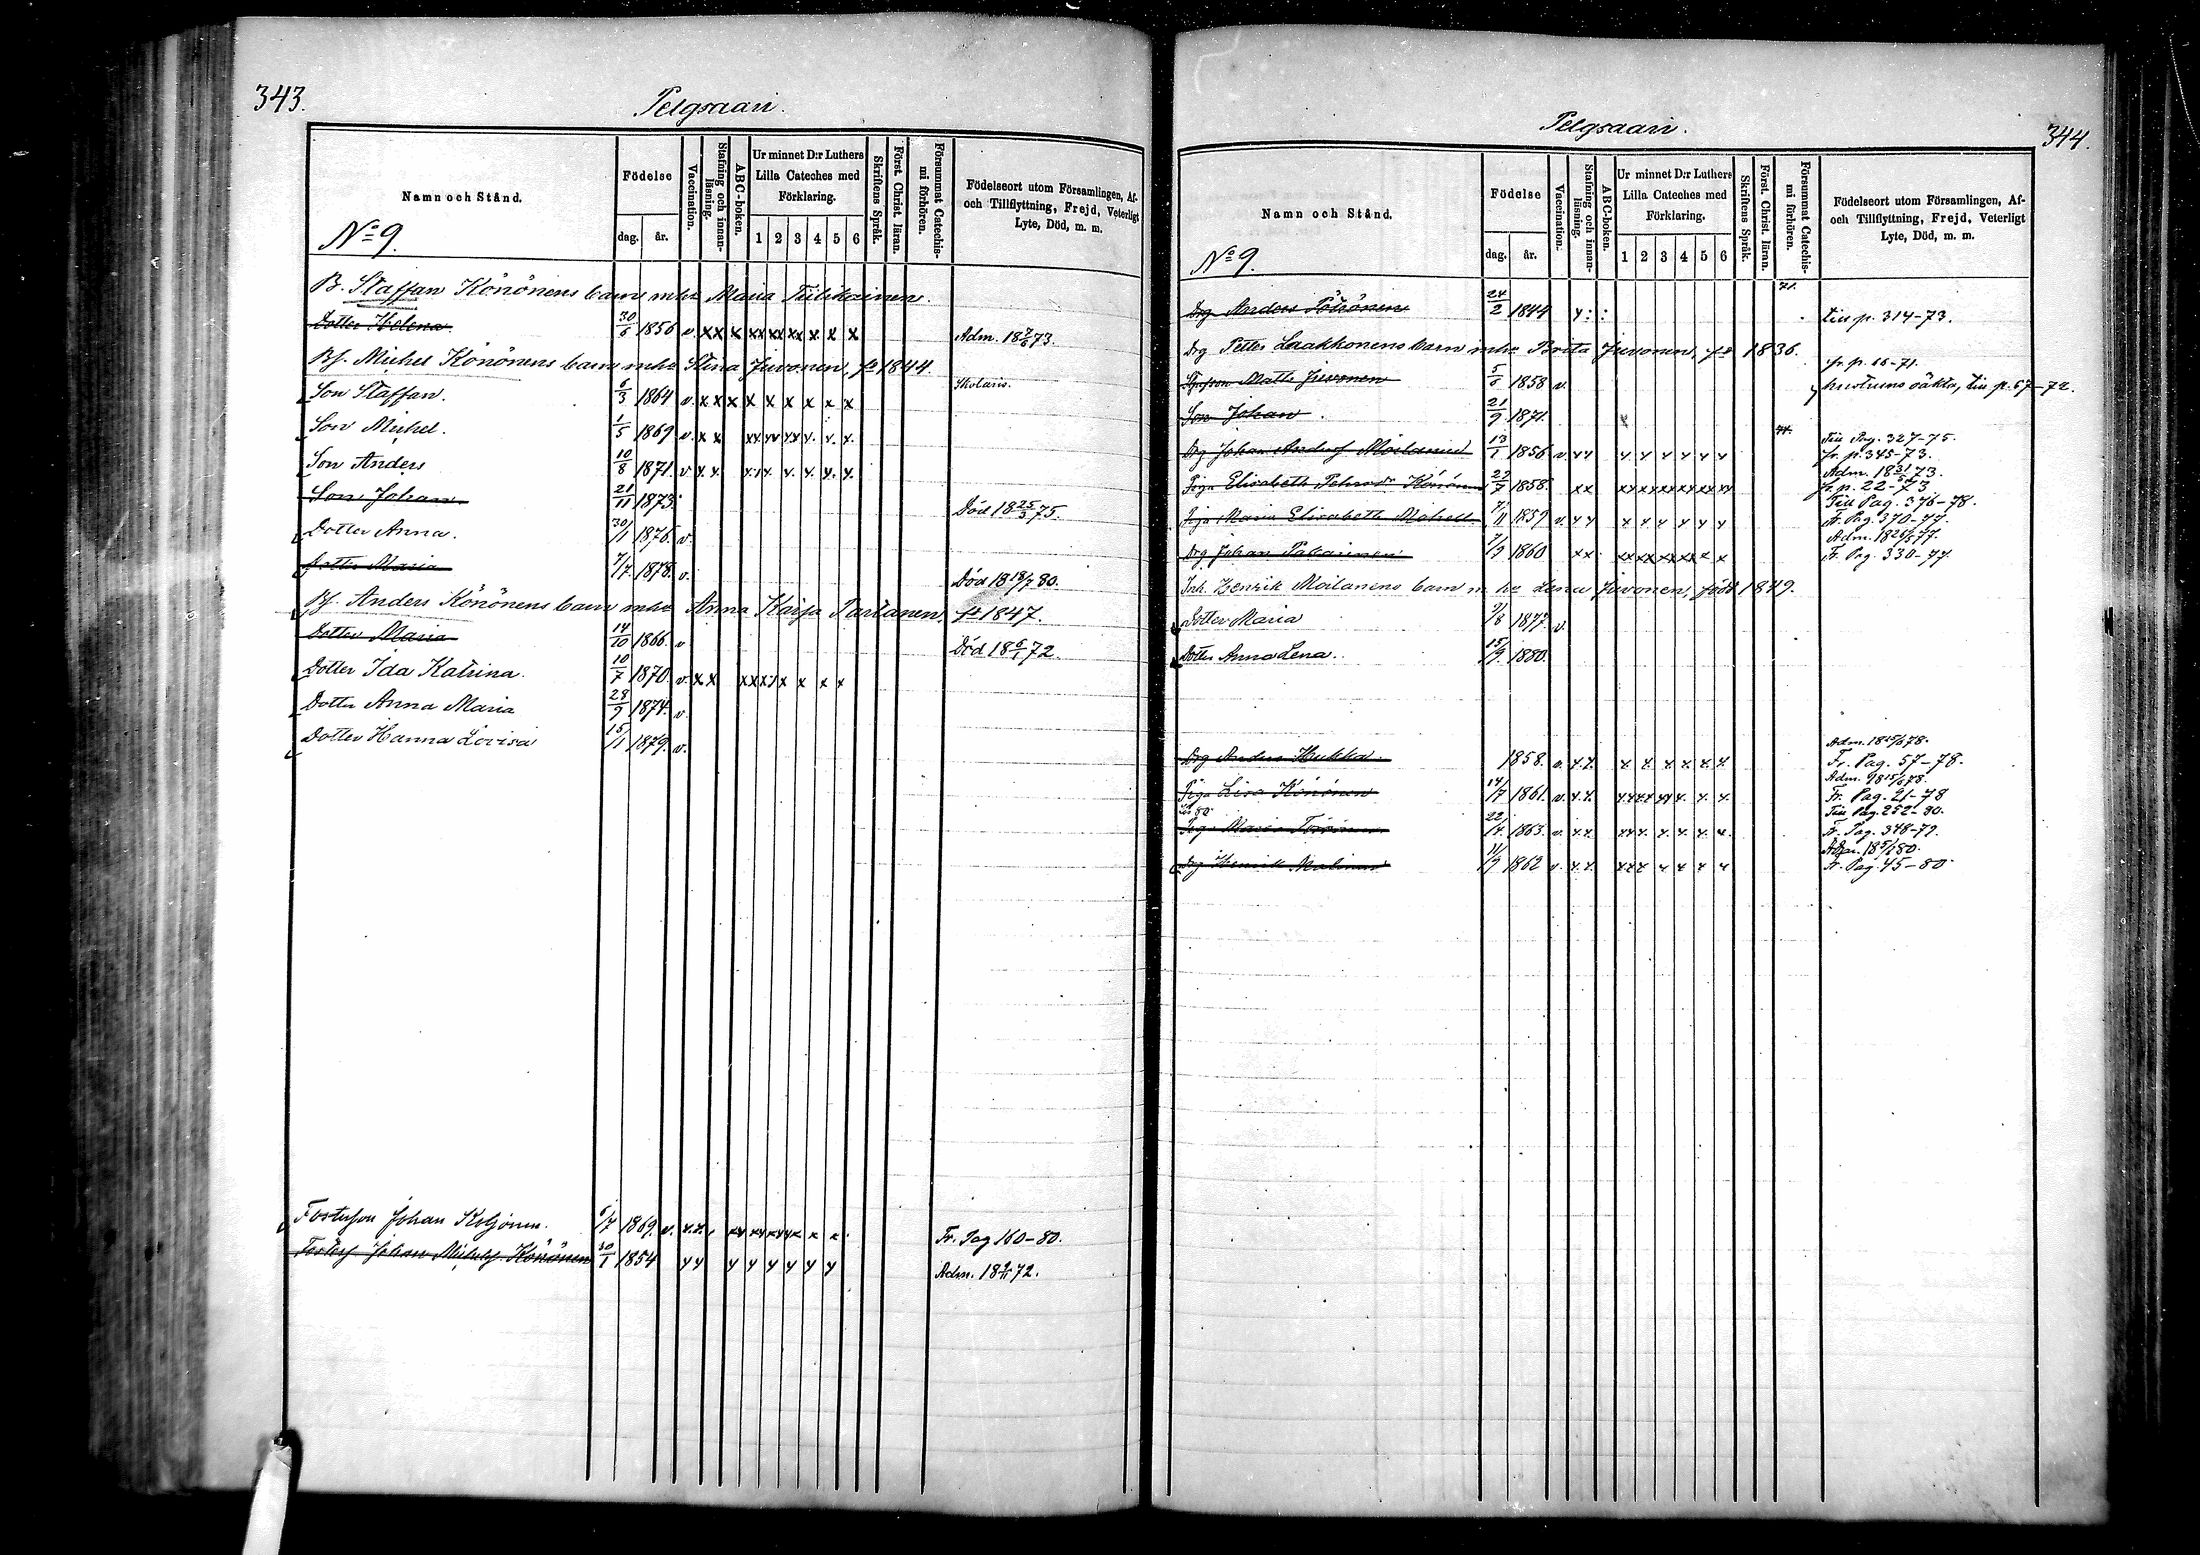 343.
Pelgsaari.
Namn och Stånd.
Födelse
dag. år.
Vaccination.
Stafning och innan-läsning.
ABC-boken.
Ur minnet D:r Luthers
Lilla Cateches med
Förklaring.
1 2 3 4 5 6
Skriftens Språk.
Först. Christ. läran.
Försummat Catechis-mi förhören.
Födelseort utom Församlingen, Af-
och Tillflyttning, Frejd, Veterligt
Lyte, Död, m. m.
No 9.
B. Staffan Könönens barn mhu Maria Tiilikainen.
Dotter Helena 30/6 1856 v. x x x xx xx xx x x x Adm. 73.
Bf. Michel Könönens barn mhu Stina Juvonen, fe 1844.
Son Staffan. 6/3 1864 v. x x x x x x x x x Skolaris.
Son Michel. 1/5 1869 v. x x xx xx xx x x x
Son Anders 10/8 1871. v x x x x x x x x
Son Johan 21/11 1873. Död 18 25/3 75.
Dotter Anna. 30/1 1876. v.
Dotter Maria 7/7 1878. v. Död 18 18/7 80.
Bf. Anders Könönens barn mhu Anna Kaisa Partanen, fe 1847.
Dotter Maria 14/10 1866. v Död 18 6/1 72.
Dotter Ida Katrina. 10/7 1870. v. x x x x x x x x x
Dotter Anna Maria 28/9 1874. v.
Dotter Hanna Lovisa 15/11 1879. v.
Fosterson Johan 6/7 1869. v. x x x x x x x x Fr. Pag 160-80.
Fosterf Johan Michelsf. Könönen 30/1 1854 x x x x x x x x Adm. 72.
344.
Pelgsaari.
Namn och Stånd.
Födelse
dag. år.
Vaccination.
Stafning och innan-läsning.
ABC-boken.
Ur minnet D:r Luthers
Lilla Cateches med
Förklaring.
1 2 3 4 5 6
Skriftens Språk.
Först. Christ. läran.
Försummat Catechis-mi förhören.
Födelseort utom Församlingen, Af-
och Tillflyttning, Frejd, Veterligt
Lyte, Död, m. m.
No 9.
71.
Drg Anders 24/2 1844 x : : till p. 314-73.
Drg Petter Laakkonens barn mhu Brita Juvonen, fe 1836.
fr. p. 16-71.
Matts Juvonen 5/6 1858 v. hustruns oäkta, till p. 67-72.
Son Johan 21/9 1871.
Till Pag. 327-75.
Drg Johan Andersf Moilanen 13/1 1856 v x x x x x x x x fr. p. 345-73.
Adm. 18 31/5 73.
Piga Elisabeth Könönen 22/7 1858. x x xx xx xx xx xx xx fr. p. 22-73
Till Pag. 376-78.
Piga Maria Elisabeth 1859 v. x x x x x x x x Fr. Pag. 370-77.
Adm. 77.
Drg Johan 7/9 1860 x x xx xx xx xx x x Fr. Pag. 330-77.
Inh. Henrik Moilanens barn m. hu Lena Juvonen, född 1849.
Dotter Maria 9/8 1877. v.
Dotter Anna Lena. 15/9 1880.
Adm. 78.
Drg Anders Hukka 1858. v. x x x x x x x x Fr. Pag. 57-78.
Adm. 78.
Piga Lisa Könönen 14/7 1861. v. x x xx xx xx x x x Fr. Pag. 21-78
Till Pag. 252-80.
Piga Maria 22/4 1863. v. x x xx x x x x x Fr. Pag. 348-79.
Adm. 80.
Drg Henrik 11/9 1862 v. x x xx x x x x x Fr. Pag. 45-80